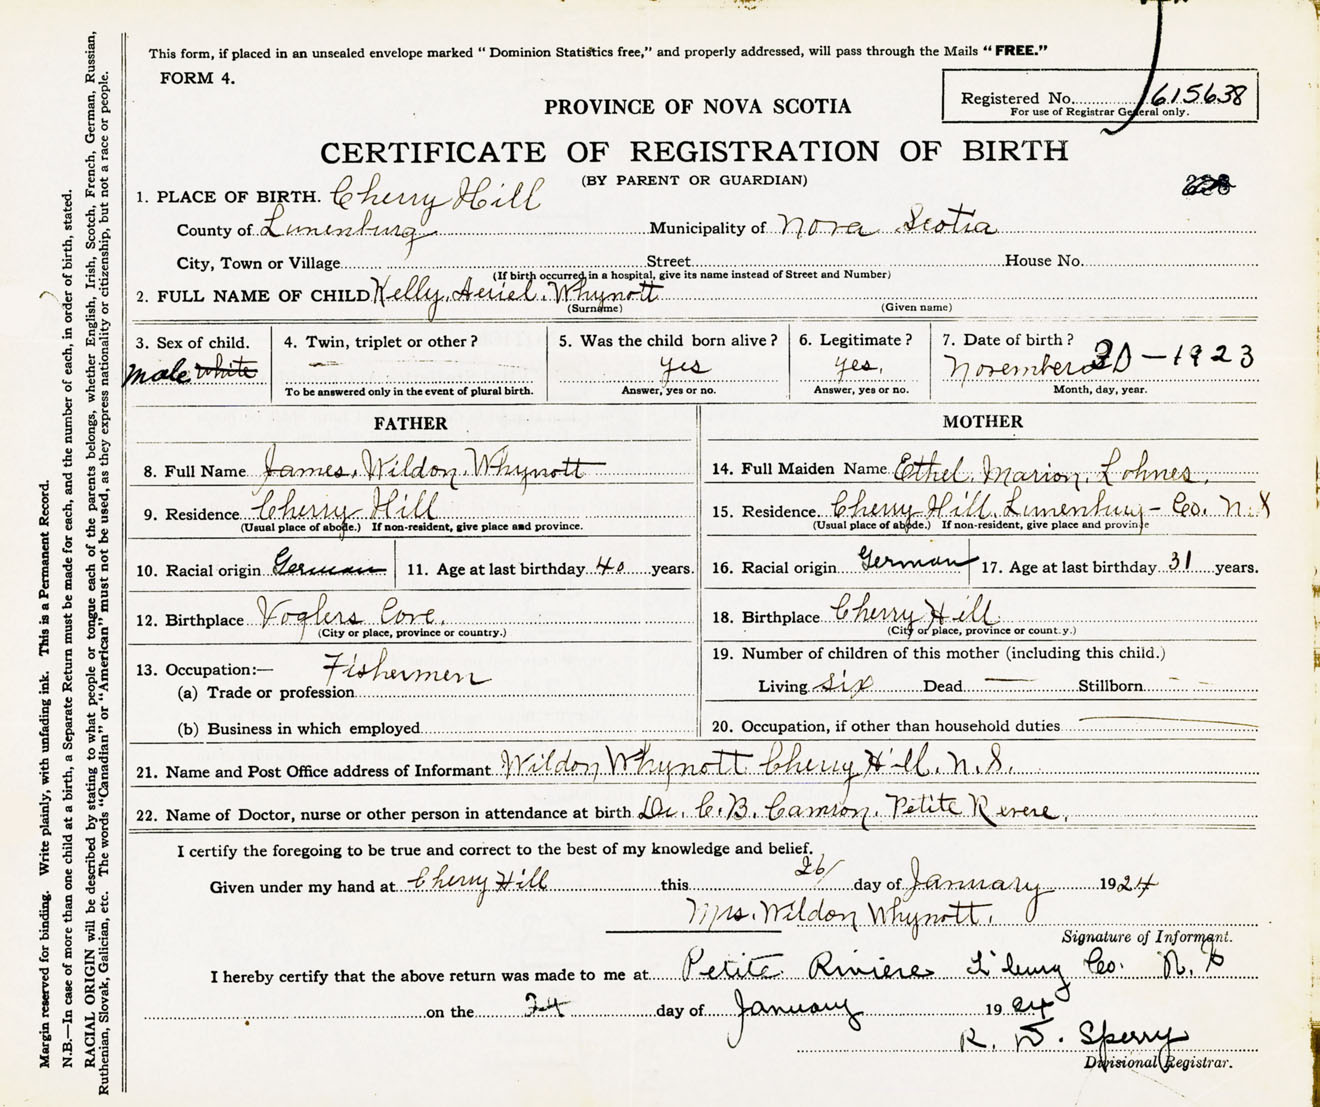 This form, if placed in an unsealed envelope marked “ Dominion Statistics free,” and properly addressed, will pass through the Mails “ FREE.”
FORM 4.
Registered No. 615638
For use of Registrar General only.
PROVINCE OF NOVA SCOTIA
CERTIFICATE OF REGISTRATION OF BIRTH
(BY PARENT OR GUARDIAN)
1. PLACE OF BIRTH. Cherry Hill
County of Lunenburg Municipality of Nova Scotia
City, Town or Village Street House No.
(If birth occurred in a hospital, give its name instead of Street and Number)
2. FULL NAME OF CHILD Kelly. Aeriel. Whynott
(Surname) (Given name)
3. Sex of child. 4. Twin, triplet or other ? 5. Was the child born alive ? 6. Legitimate ? 7. Date of birth ?
male white — yes yes. November 20 - 1923
To be answered only in the event of plural birth. Answer, yes or no. Answer, yes or no. Month, day, year.
FATHER
8. Full Name James. Wildon. Whynott
9. Residence Cherry Hill
(Usual place of abode.) If non-resident, give place and province.
10. Racial origin German 11. Age at last birthday 40 years.
12. Birthplace Voglers Cove.
(City or place, province or country.)
13. Occupation:— Fishermen
(a) Trade or profession
(b) Business in which employed
MOTHER
14. Full Maiden Name Ethel. Marion. Lohnes.
15. Residence. Cherry Hill. Lunenburg - Co. N.S
(Usual place of abode.) If non-resident, give place and province
16. Racial origin German 17. Age at last birthday 31 years.
18. Birthplace Cherry Hill
(City or place, province or country.)
19. Number of children of this mother (including this child.)
Living six Dead — Stillborn - -
20. Occupation, if other than household duties
21. Name and Post Office address of Informant Wildon Whynott Cherry Hill. N.S.
22. Name of Doctor, nurse or other person in attendance at birth Dr. C.B. Camron. Petite Revere.
I certify the foregoing to be true and correct to the best of my knowledge and belief.
Given under my hand at Cherry Hill this 26 day of January 1924
Mrs. Wildon Whynott.
Signature of Informant.
I hereby certify that the above return was made to me at Petite Riviere L'burg Co. N. S
on the day of January 1924
R. D. Sperry
Divisional Registrar.
Margin reserved for binding. Write plainly, with unfading ink. This is a Permanent Record.
N.B.—In case of more than one child at a birth, a Separate Return must be made for each, and the number of each, in order of birth, stated.
RACIAL ORIGIN will be described by stating to what people or tongue each of the parents belongs, whether English, Irish, Scotch, French, German, Russian,
Ruthenian, Slovak, Galician, etc. The words “Canadian” or “American” must not be used, as they express nationality or citizenship, but not a race or people.